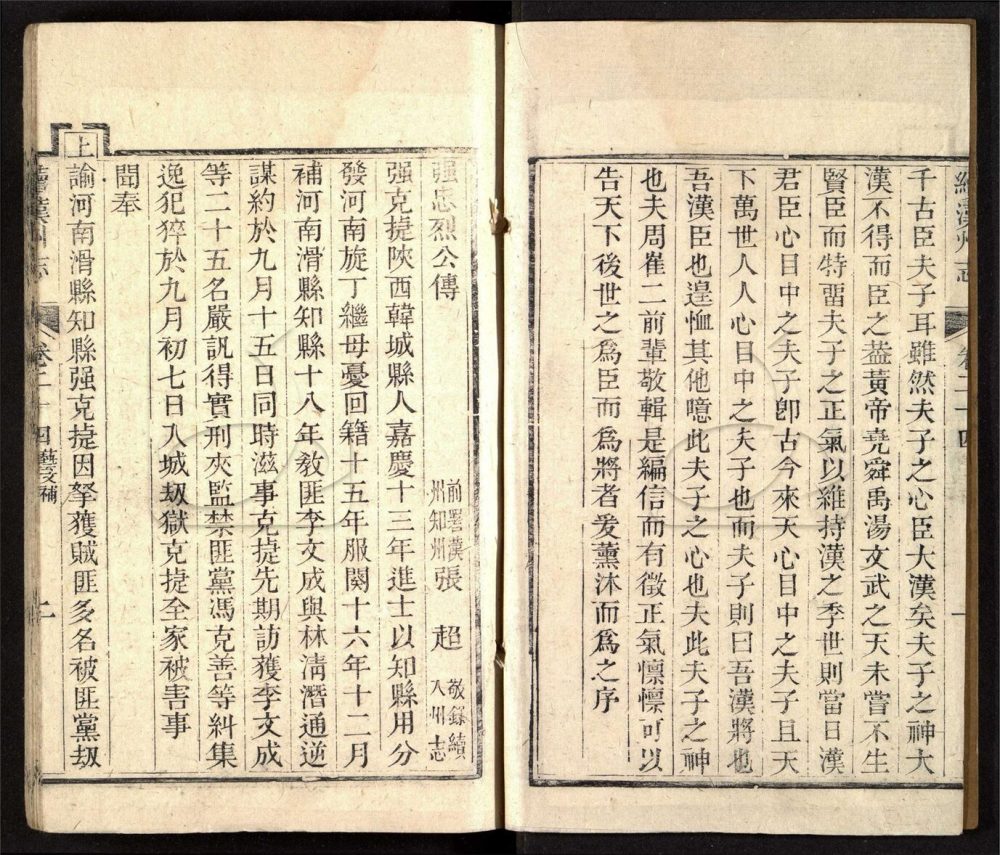 續漢州志 卷二十四 一
千古臣夫子耳雖然夫子之心臣大漢矣夫子之神大
漢不得而臣之葢黃帝堯舜禹湯文武之天未嘗不生
賢臣而特畱夫子之正氣以維持漢之季世則當日漢
君臣心目中之夫子卽古今來天心目中之夫子且天
下萬世人人心目中之夫子也而夫子則曰吾漢將也
吾漢臣也遑恤其他噫此夫子之心也夫此夫子之神
也夫周崔二前輩敬輯是編信而有徵正氣懍懍可以
告天下後世之爲臣而爲將者爰薰沐而爲之序
强忠烈公傳 前署漢州知州張超敬錄續入州志
强克捷陝西韓城縣人嘉慶十三年進士以知縣用分
發河南旋丁繼母憂回籍十五年服闋十六年十二月
補河南滑縣知縣十八年教匪李文成與林清潛通逆
謀約於九月十五日同時滋事克捷先期訪獲李文成
等二十五名嚴訊得實刑夾監禁匪黨馮克善等糾集
逸犯猝於九月初七日入城刼獄克捷全家被害事
聞奉
上諭河南滑縣知縣强克捷因拏獲賊匪多名被匪黨刼
續漢州志 卷二十四藝文補